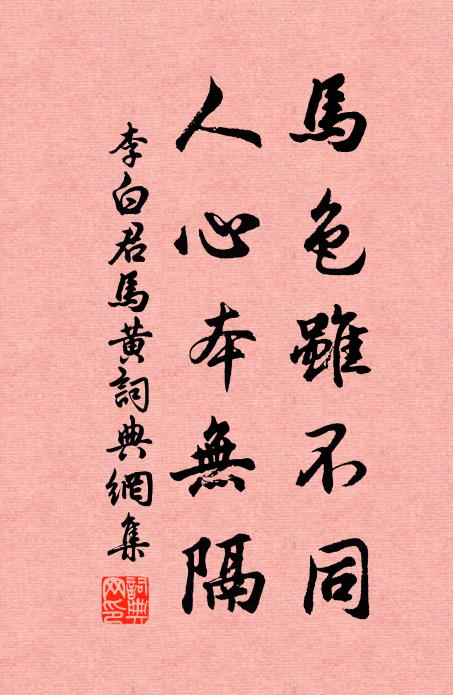 馬色雖不同
人心本無隔
李白君馬黃詞典網集
詞典網印